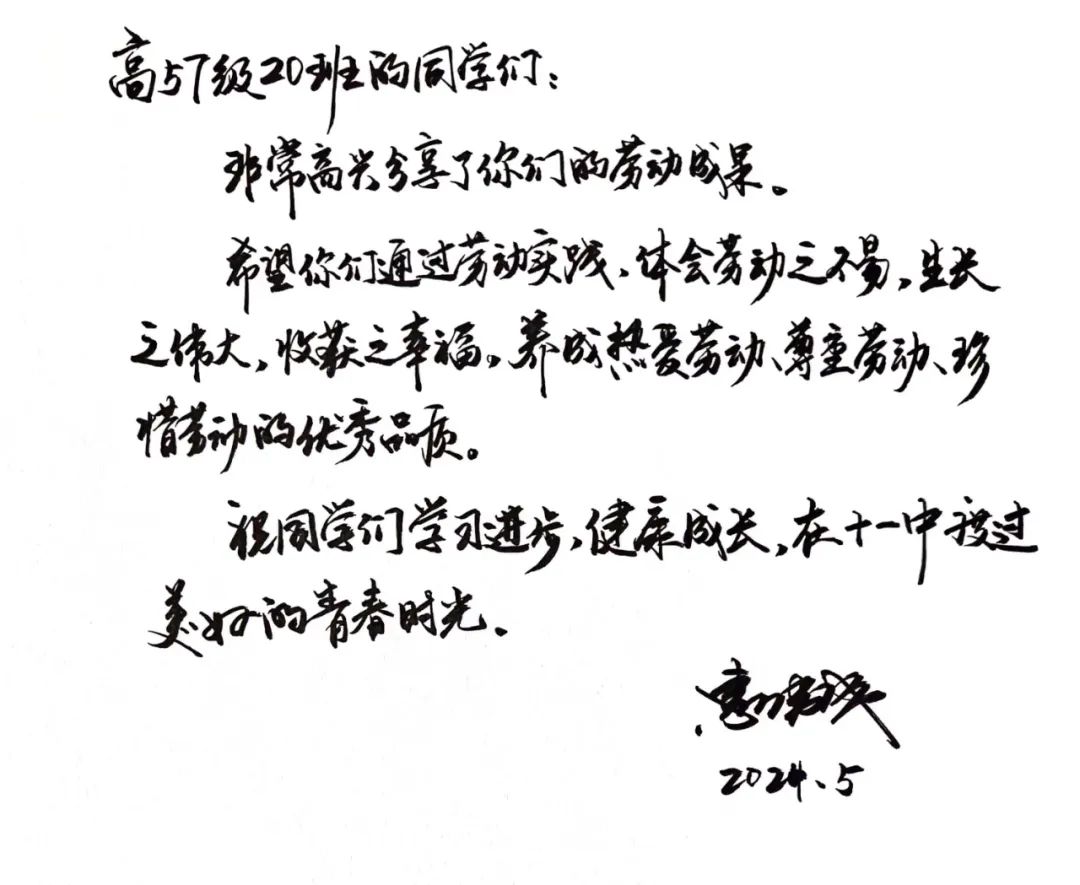 高57级20班的同学们：
非常高兴分享了你们的劳动成果。
希望你们通过劳动实践、体会劳动之不易，生长
之伟大，收获之幸福。养成热爱劳动、尊重劳动、珍
惜劳动的优秀品质。
祝同学们学习进步，健康成长，在十一中度过
美好的青春时光。
2024、5